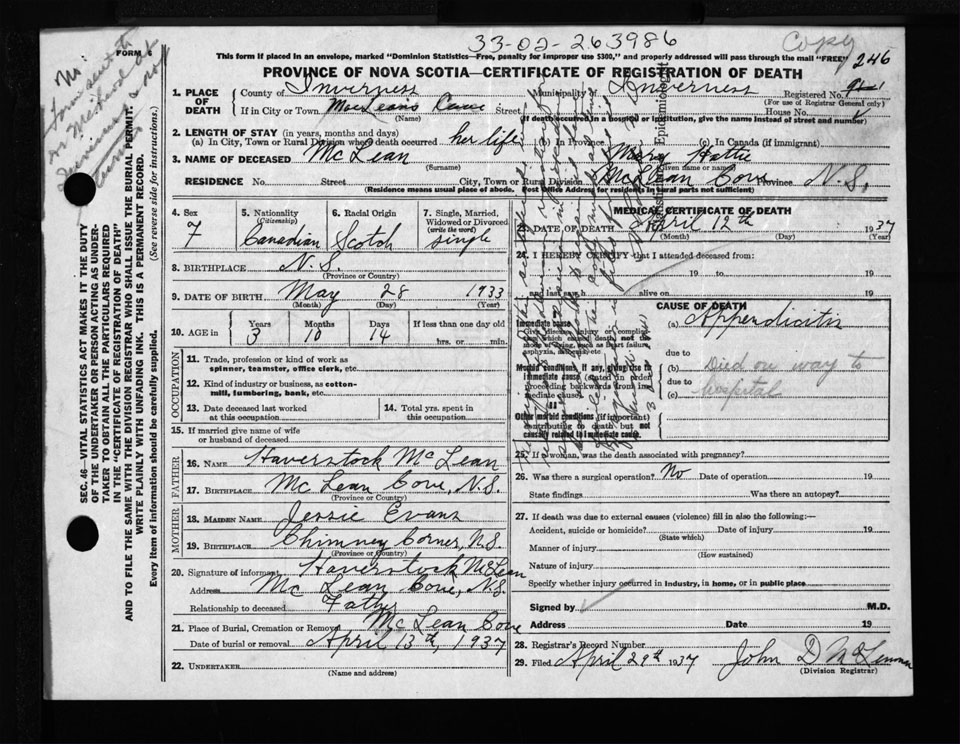 33-02-263986
Copy
FORM 6
This form if placed in an envelope, marked "Dominion Statistics—Free, penalty for improper use $300," and properly addressed will pass through the mail "FREE"
246
PROVINCE OF NOVA SCOTIA—CERTIFICATE OF REGISTRATION OF DEATH
1. PLACE OF DEATH
County of Inverness Municipality of Inverness Registered No.
(For use of Registrar General only)
If in City or Town MacLeans Cove Street House No.
(Name) (If death occurred in a hospital or institution, give the name instead of street and number)
2. LENGTH OF STAY (in years, months and days)
(a) In City, Town or Rural Division where death occurred her life (b) In Province (c) In Canada (if immigrant)
3. NAME OF DECEASED McLean Mary Hattie
(Surname) (Given name or names)
RESIDENCE No. Street City, Town or Rural Division McLean Cove Province N.S.
(Residence means usual place of abode. Post Office Address for Residents in rural parts not sufficient)
4. Sex
5. Nationality (Citizenship)
6. Racial Origin
7. Single, Married, Widowed or Divorced (write the word)
7 Canadian Scotch single
8. BIRTHPLACE N.S.
(Province or Country)
9. DATE OF BIRTH May 28 1933
(Month) (Day) (Year)
10. AGE in
Years Months Days If less than one day old
3 10 14 hrs. or min.
OCCUPATION
11. Trade, profession or kind of work as spinner, teamster, office clerk, etc.
12. Kind of industry or business, as cotton-mill, lumbering, bank, etc.
13. Date deceased last worked at this occupation
14. Total yrs. spent in this occupation
15. If married give name of wife or husband of deceased
FATHER
16. NAME Haverstock McLean
17. BIRTHPLACE McLean Cove, N.S.
(Province or Country)
MOTHER
18. MAIDEN NAME Jessie Evans
19. BIRTHPLACE Chimney Corner, N.S.
(Province or Country)
20. Signature of informant Haverstock McLean
Address McLean Cove, N.S.
Relationship to deceased Father
21. Place of Burial, Cremation or Removal McLean Cove
Date of burial or removal April 13th, 1937
22. UNDERTAKER
(Name and address)
MEDICAL CERTIFICATE OF DEATH
23. DATE OF DEATH April 12th 1937
(Month) (Day) (Year)
24. I HEREBY CERTIFY that I attended deceased from:
19 to 19
I last saw h alive on 19
CAUSE OF DEATH
Immediate cause
Give disease, injury or complication which caused death, not the mode of dying, such as heart failure, asphyxia, asthenia, etc.
(a) Appendicitis
due to
Morbid conditions, if any, giving rise to immediate cause (stated in order proceeding backwards from immediate cause).
(b) Died on way to
due to
(c) hospital
Other morbid conditions (if important) contributing to death but not causally related to immediate cause.
25. If a woman, was the death associated with pregnancy?
26. Was there a surgical operation? No Date of operation 19
State findings Was there an autopsy?
27. If death was due to external causes (violence) fill in also the following:—
Accident, suicide or homicide? Date of injury 19
(State which)
Manner of injury
(How sustained)
Nature of injury
Specify whether injury occurred in industry, in home, or in public place
Signed by M.D.
Address Date 19
28. Registrar's Record Number
29. Filed April 29th 1937 John D McLennan
(Division Registrar)
SEC. 46—VITAL STATISTICS ACT MAKES IT THE DUTY
OF THE UNDERTAKER OR PERSON ACTING AS UNDER-
TAKER TO OBTAIN ALL THE PARTICULARS REQUIRED
IN THE "CERTIFICATE OF REGISTRATION OF DEATH"
AND TO FILE THE SAME WITH THE DIVISION REGISTRAR WHO SHALL ISSUE THE BURIAL PERMIT.
WRITE PLAINLY WITH UNFADING INK. THIS IS A PERMANENT RECORD.
Every item of information should be carefully supplied. (See reverse side for instructions.)